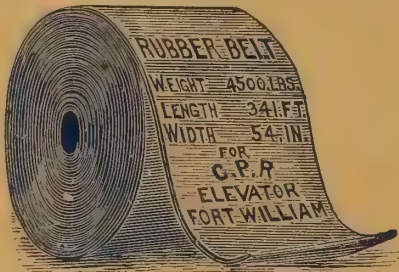 RUBBER BELT
WEIGHT 4500.LBS.
LENGTH 341.FT.
WIDTH 54.IN.
FOR
C.P.R
ELEVATOR
FORT WILLIAM